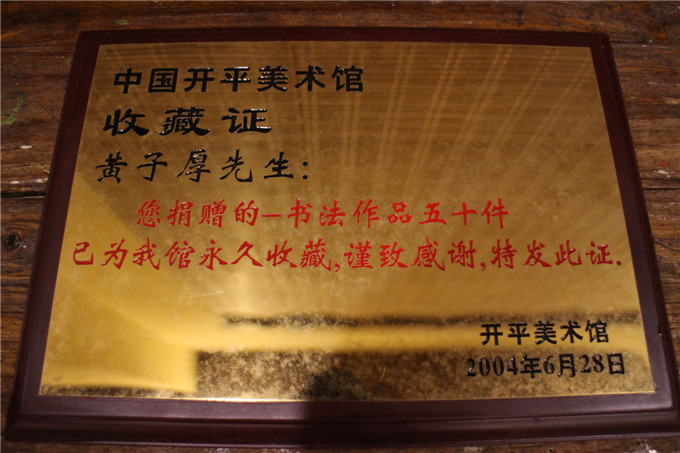 中国开平美术馆
收藏证
黄子厚先生:
您捐赠的—书法作品五十件
已为我馆永久收藏,谨致感谢,特发此证.
开平美术馆
2004年6月28日